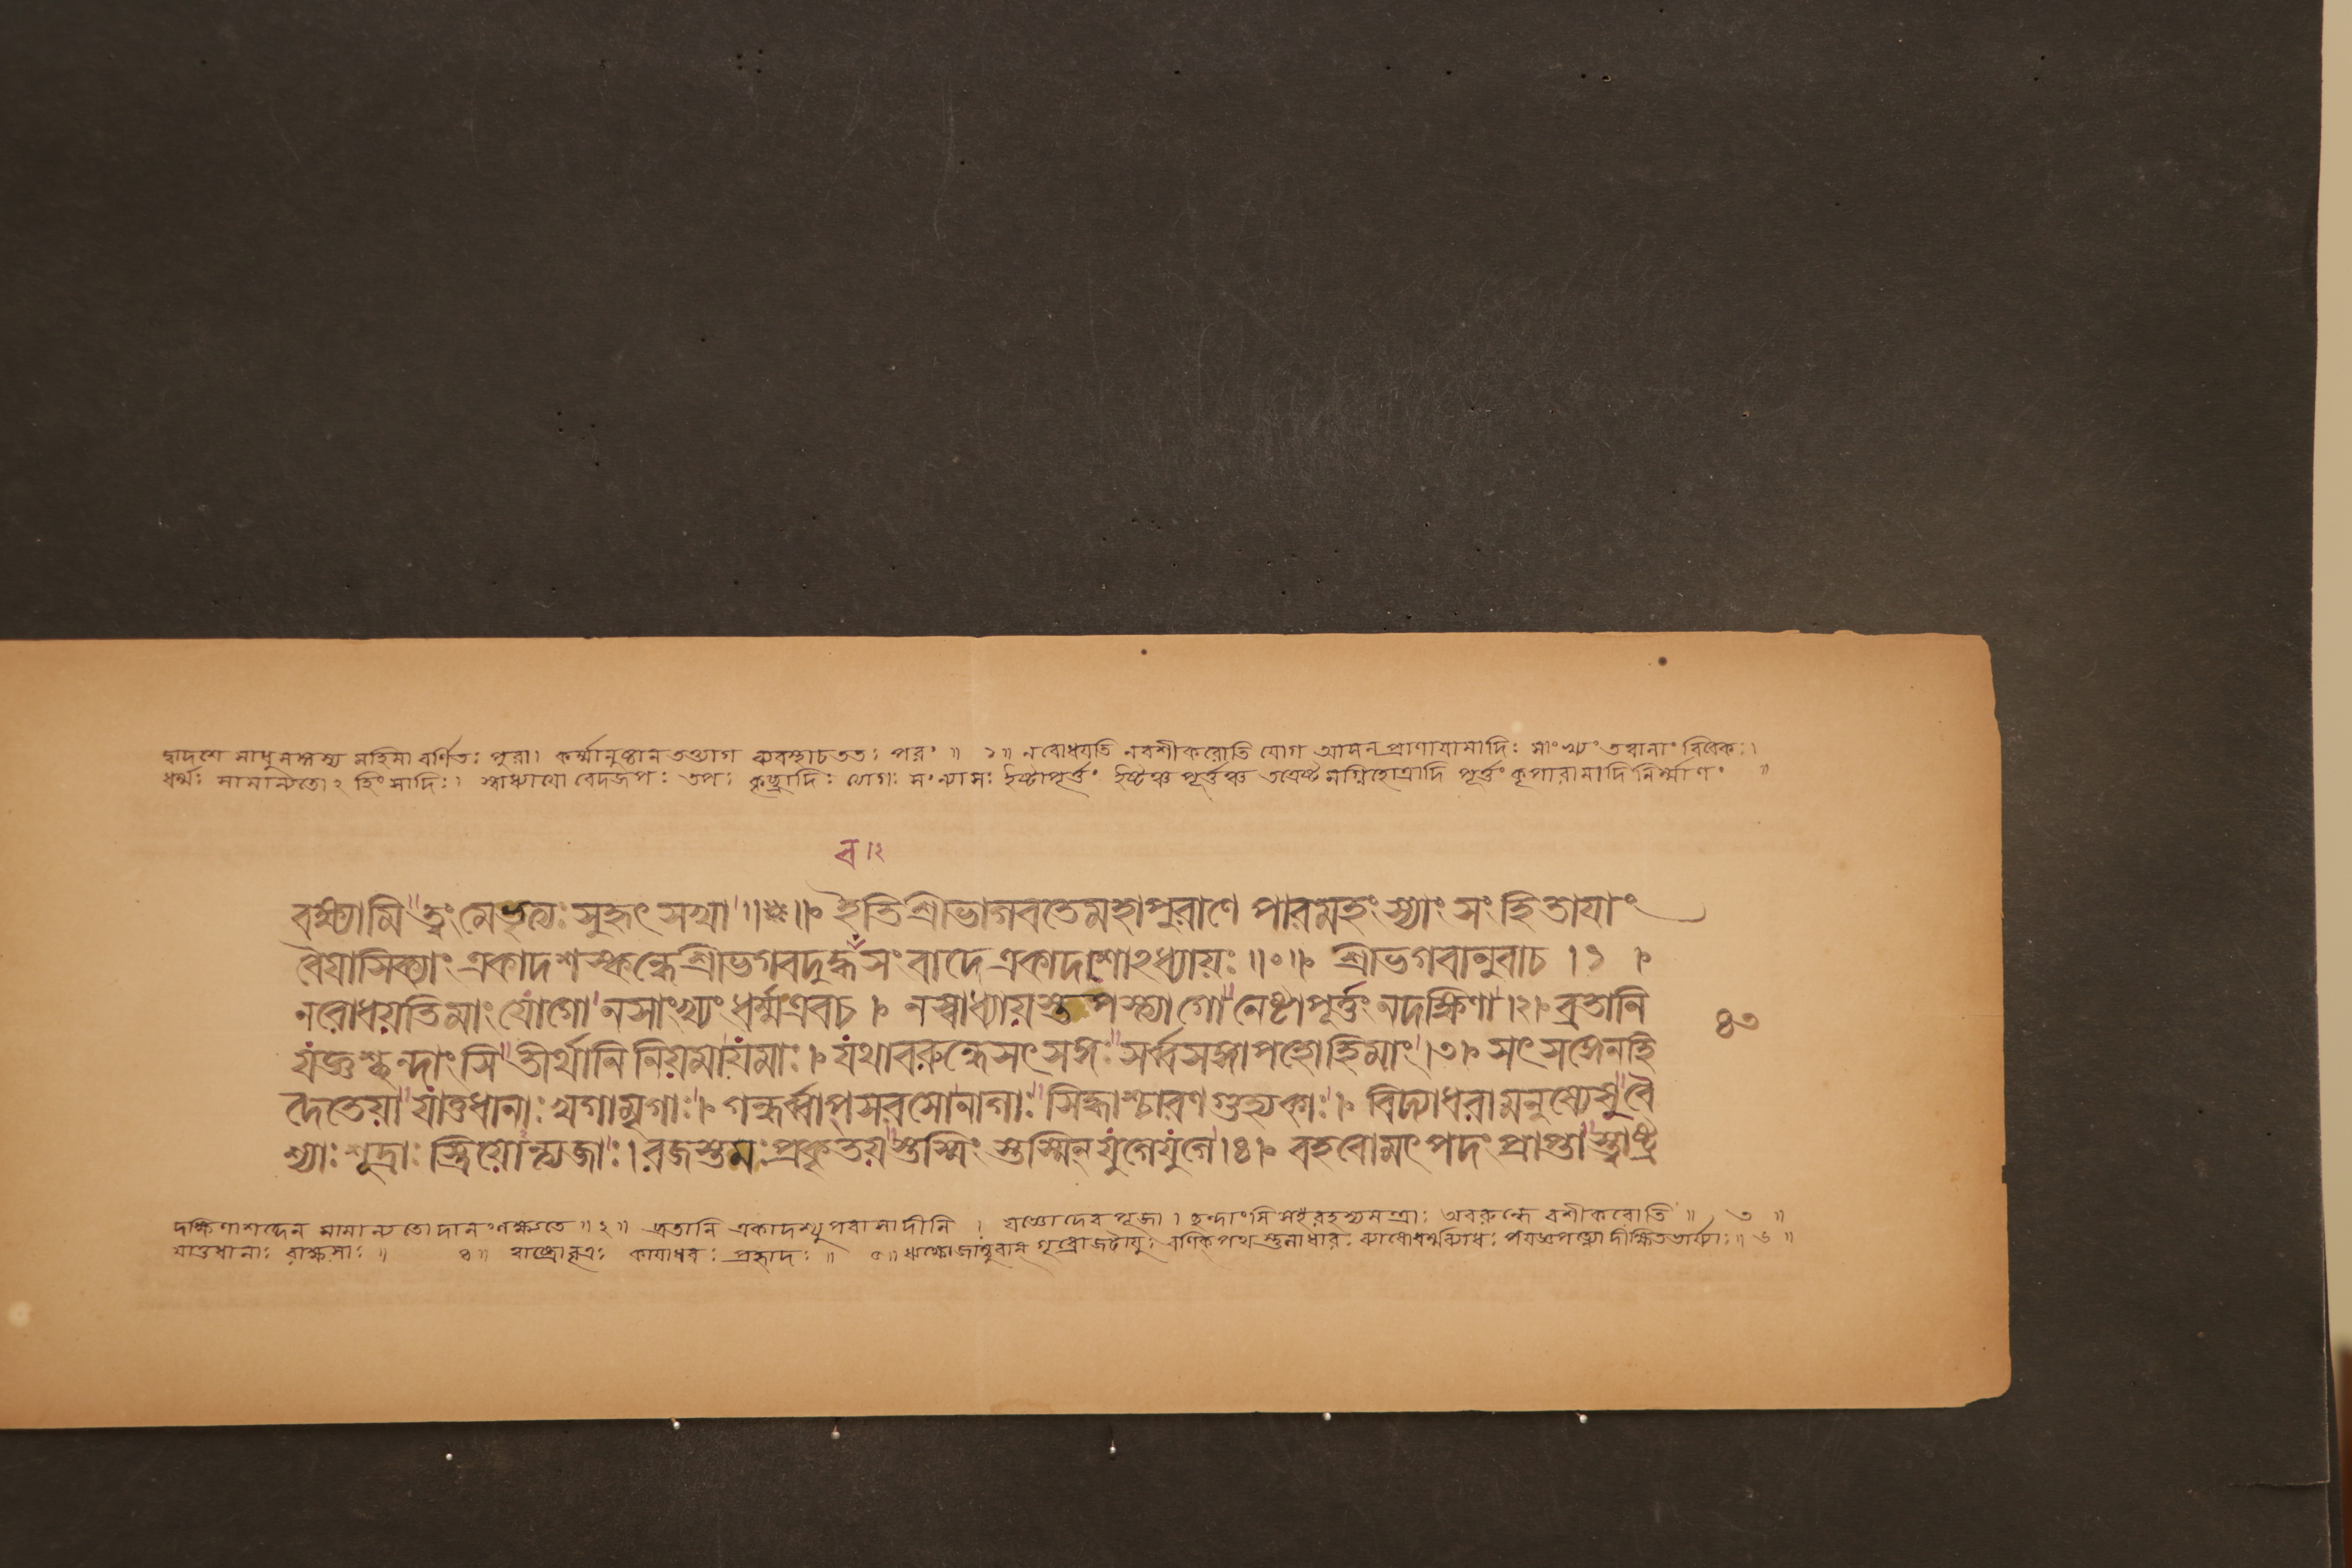 দ্বাদশে সাধুসঙ্গস্য মহিমা বর্ণিতঃ পুরা। কর্ম্মানুষ্ঠান তত্ত্যাগ ব্যবস্থাচততঃ পরং ॥ ১॥ নরোধয়তি নবশীকরোতি যোগ আসন প্রাণায়ামাদিঃ সাংখ্যং তত্বানাং বিবেকঃ।
ধর্ম্মঃ সামান্যতোঽ হিংসাদিঃ। স্বাধ্যায়ো বেদজপঃ তপঃ কৃচ্ছ্রাদিঃ ত্যাগঃ সংন্যাসঃ ইষ্টাপূর্ত্তং ইষ্টঞ্চ পূর্ত্তঞ্চ তত্রেষ্টমগ্নিহোত্রাদি পূর্ত্তং কূপারামাদি নির্ম্মাণং ॥
ব।২
বক্ষ্যামি ত্বংমেভৃত্যঃ সুহৃৎ সখা ॥❋॥ ইতিশ্রীভাগবতেমহাপুরাণে পারমহংস্যাং সংহিতাযাং
বৈয়াসিক্যাং একাদশস্কন্ধেশ্রীভগবদুদ্ধবসংবাদে একাদশোঽধ্যায়ঃ ॥০॥ শ্রীভগবানুবাচ ।১।
নরোধয়তিমাং যোগো নসাংখ্যং ধর্ম্মএবচ । নস্বাধ্যায়স্তপস্ত্যাগো নেষ্টাপূর্ত্তং নদক্ষিণা ।২। ব্রতানি
যজ্ঞশ্ছন্দাংসি তীর্থানি নিয়মাযমাঃ । যথাবরুন্ধেসৎসঙ্গঃ সর্ব্বসঙ্গাপহোহিমাং ।৩। সৎসঙ্গেনহি
দৈতেয়া যাতুধানাঃ খগামৃগাঃ । গন্ধর্ব্বাপ্সরসোনাগাঃ সিদ্ধাশ্চারণগুহ্যকাঃ । বিদ্যাধরামনুষ্যেষু বৈ
শ্যাঃ শূদ্রাঃ স্ত্রিয়োন্ত্যজাঃ । রজস্তমঃপ্রকৃতয়স্তস্মিংস্তস্মিন্ যুগেযুগে ।৪। বহবোমৎপদং প্রাপ্তা স্ত্বাষ্ট্র
৪৩
দক্ষিণাশব্দেন সামান্যতোদানংলক্ষ্যতে ॥২॥ ব্রতানি একাদশ্যুপবাসাদীনি । যজ্ঞোদেবপূজা। ছন্দাংসি রহস্যমন্ত্রাঃ অবরুন্ধে বশীকরোতি ॥ ৩ ॥
যাতুধানাঃ রাক্ষসাঃ ॥ ৪॥ ত্বাষ্ট্রোবৃত্রঃ কায়াধবঃ প্রহ্লাদঃ ॥ ৫॥ ঋক্ষোজাম্বুবান্ গৃধ্রোজটায়ুঃ বণিকপথস্তুলাধারঃ ব্যাধোধর্ম্মব্যাধঃ যজ্ঞপত্ন্যোদীক্ষিতভার্য্যাঃ॥ ৬ ॥